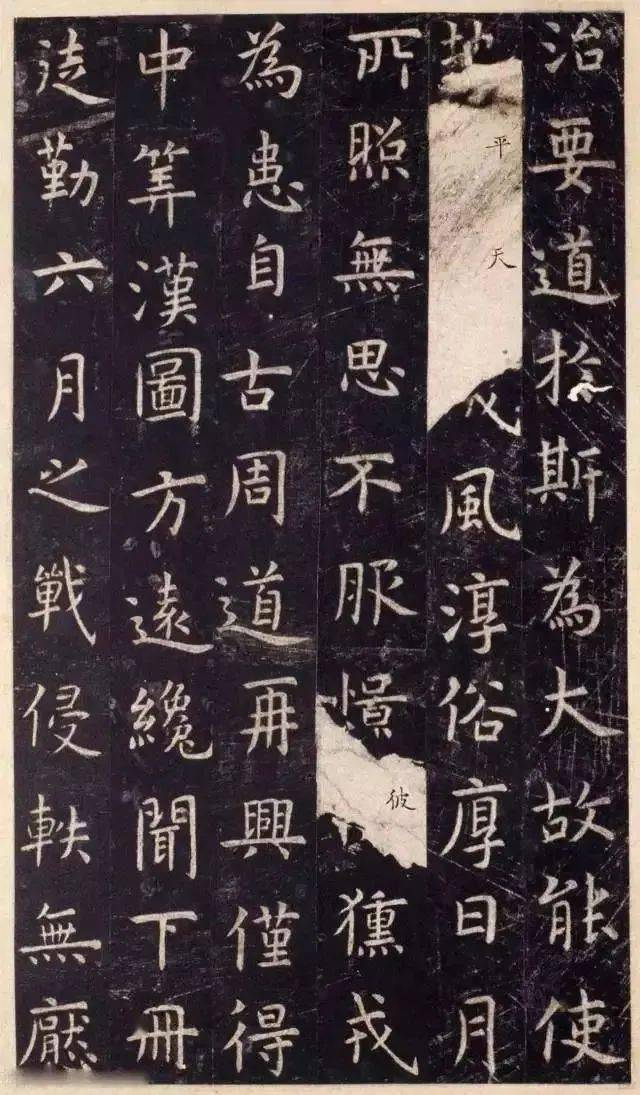 治要道扵斯為大故能使
地平天成風淳俗厚日月
所照無思不服憬彼獯戎
為患自古周道再興僅得
中筭漢圖方遠纔聞下冊
徒勤六月之戰侵軼無厭